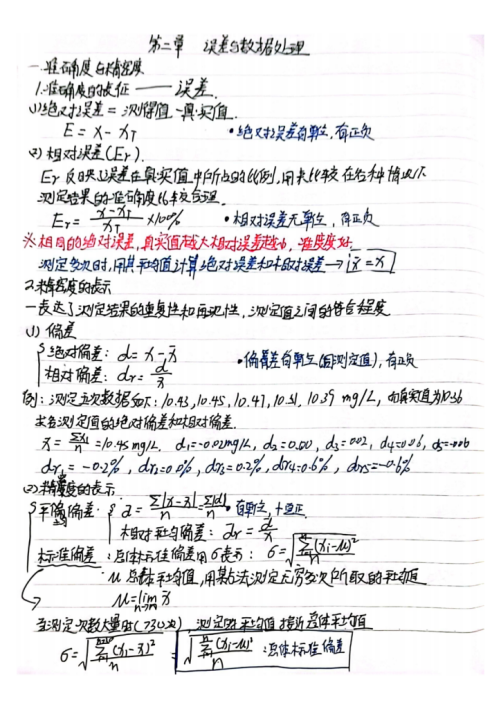 第二章 误差与数据处理
一.准确度与精密度
1.准确度的表征 —— 误差.
(1)绝对误差 = 测得值 - 真实值.
E = x - x_T •绝对误差有单位,有正负
(2) 相对误差(Er).
Er 反映了误差在真实值中所占的比例,用来比较在各种情况下
测定结果的准确度比较合理.
Er = (x-x_T)/x_T ×100% •相对误差无单位,有正负
※相同的绝对误差,真实值越大相对误差越小,准度度好.
测定多次时,用其平均值计算绝对误差和相对误差→ x̄ = x
2.精密度的表示
一表达了测定结果的重复性和再现性,测定值之间的符合程度
(1) 偏差
{绝对偏差: d = x - x̄
相对偏差: dr = d/x̄ •偏差有单位(同测定值),有正负
例: 测定五次数据如下: 10.43, 10.45, 10.47, 10.51, 10.39 mg/L, 的真实值为10.36
求各测定值的绝对偏差和相对偏差.
x̄ = Σxi/n = 10.45 mg/L. d₁=-0.02mg/L, d₂=0.00, d₃=0.02, d₄=0.06, d₅=-0.06
dr₁ = -0.2%, dr₂=0.0%, dr₃=0.2%, dr₄=0.6%, dr₅=-0.6%
(2)精密度的表示
平均偏差: { d̄ = Σ|x-x̄|/n = Σ|d|/n •有单位,恒正.
相对平均偏差: d̄r = d̄/x̄
标准偏差: 总体标准偏差用σ表示: σ = √(Σ(xi-μ)²/n)
μ总体平均值,用某方法测定无穷多次所取的平均值
μ = lim n→∞ x̄
当测定次数大量时(>30次) 测定的平均值接近总体平均值
σ = √(Σ(xi-x̄)²/n) = √(Σ(xi-μ)²/n) :总体标准偏差